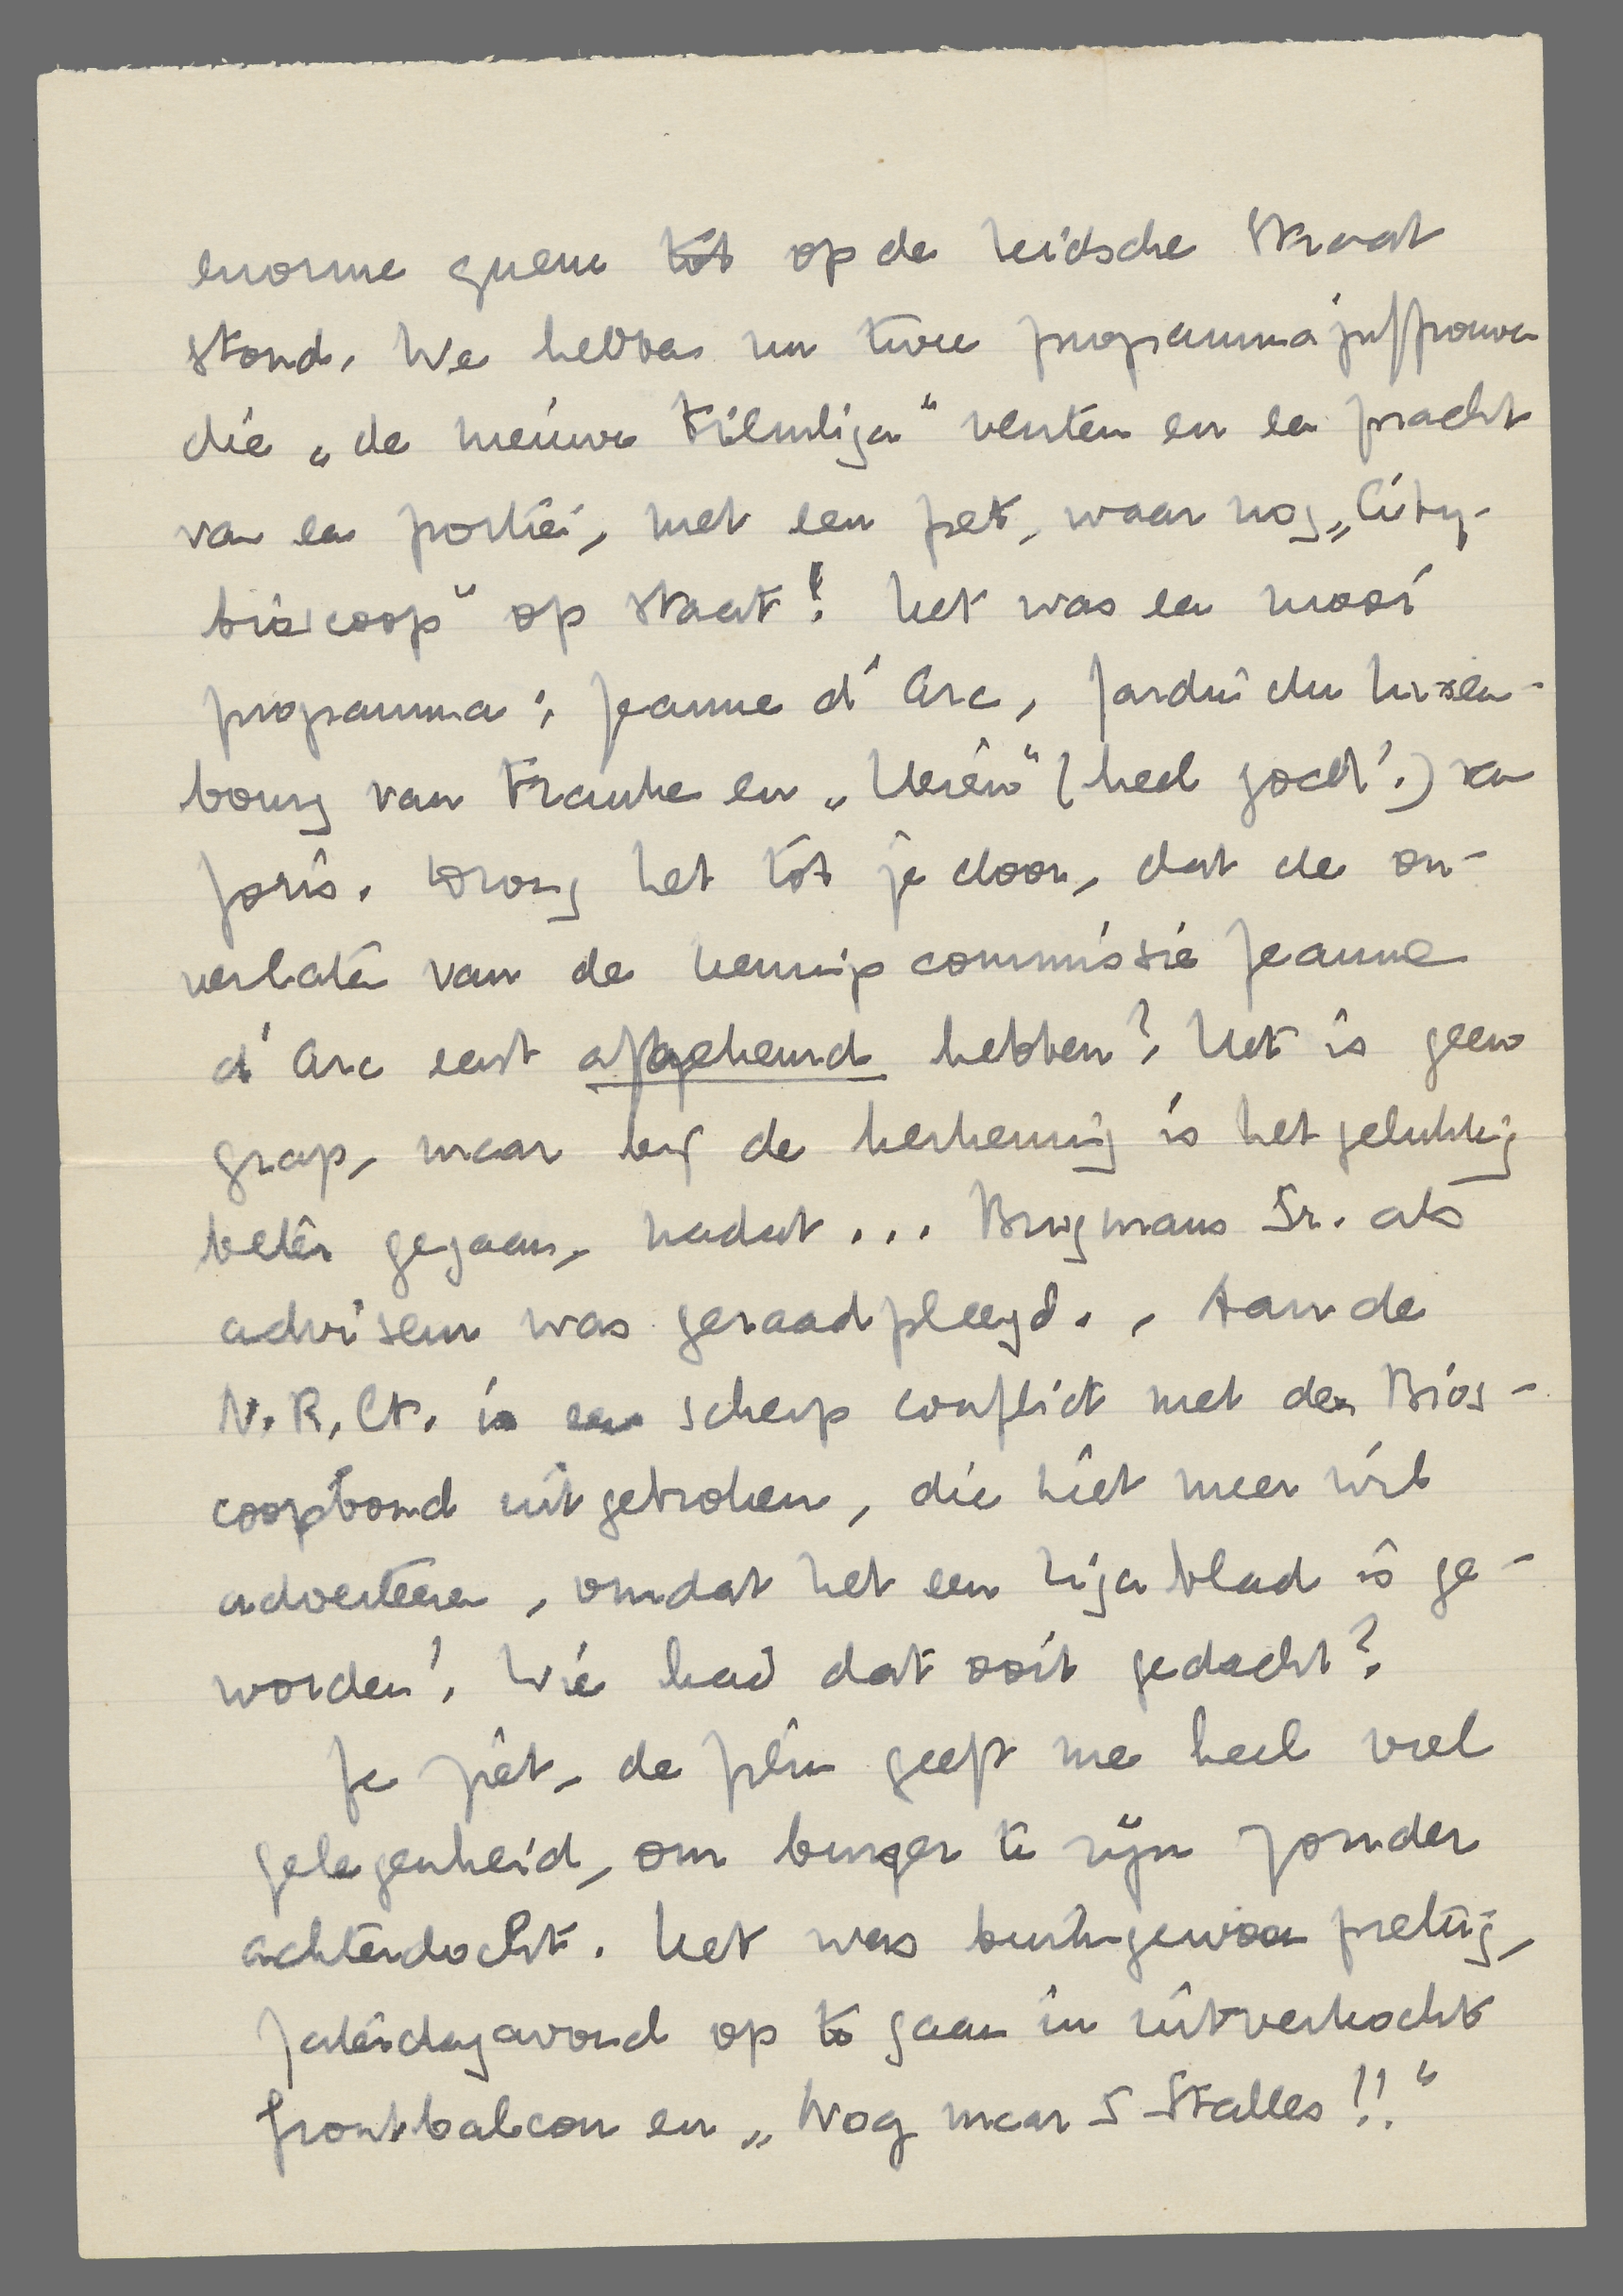 enorme queue tot op de Leidsche Straat
stond. We hebben nu twee programmajuffrouwen
die „de nieuwe Filmliga" venten en een pracht
van een portier, met een pet, waar nog „City-
bioscoop" op staat! Het was een mooi
programma: Jeanne d'Arc, Jardin du Luxem-
bourg van Franke en „Heien" (heel goed!) van
Joris. Drong het tot je door, dat de on-
verlaten van de kennipcommissie Jeanne
d'Arc eerst afgekeurd hebben? Het is geen
grap, maar bij de herkeuring is het gelukkig
beter gegaan, nadat ... Brugmans Sr. als
adviseur was geraadpleegd. . Aan de
N.R.Ct. is een scherp conflict met den Bios-
coopbond uitgebroken, die niet meer wil
adverteeren, omdat het een Ligablad is ge-
worden! Wie had dat ooit gedacht?
Je ziet, de film geeft me heel veel
gelegenheid, om burger te zijn zonder
achterdocht. Het was buitengewoon prettig,
Zaterdagavond op te gaan in uitverkocht
frontbalcon en „Nog maar 5 Stalles!!"